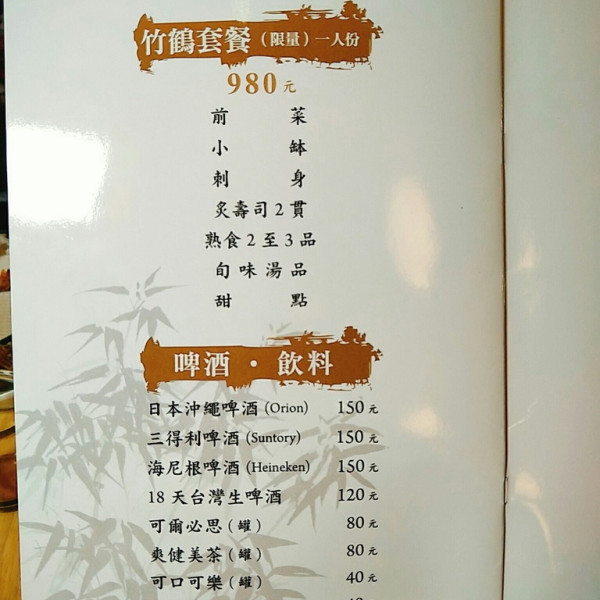 竹鶴套餐（限量）一人份
980元
前菜
小缽
刺身
炙壽司2貫
熟食2至3品
旬味湯品
甜點
啤酒・飲料
日本沖繩啤酒(Orion) 150元
三得利啤酒(Suntory) 150元
海尼根啤酒(Heineken) 150元
18天台灣生啤酒 120元
可爾必思(罐) 80元
爽健美茶(罐) 80元
可口可樂(罐) 40元